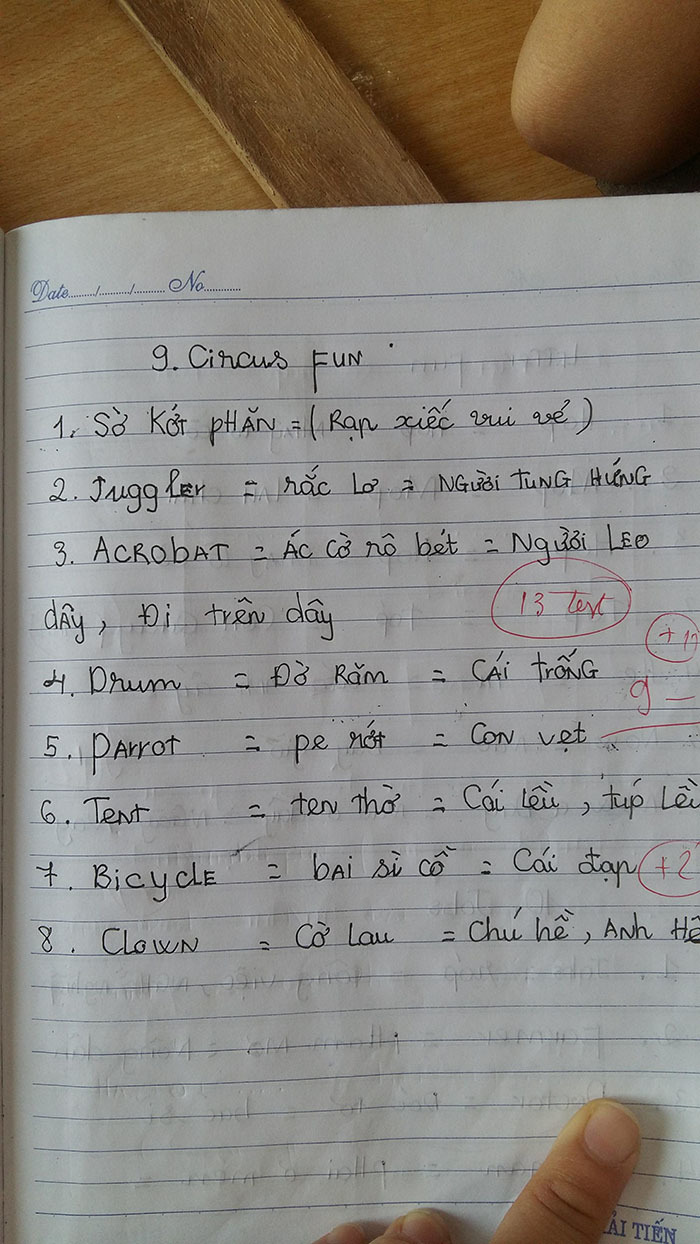 Date......../......../........ No..........
9. Circus FUN
1. Sờ Kớt pHĂN = (Rạp xiếc vui vẻ)
2. Juggler = rắc Lơ = NGười TUNG HỨNG
3. ACRObAT = ÁC Cờ rô bét = Người LEO
dÂy, Đi trên dây
13 test
4. Drum = Đờ RĂm = CÁi TRỐNG
9
5. pArrot = pe rớt = Con vẹt
6. Tent = ten thờ = Cái lều, túp Lều
7. BicycLE = bAi sì cồ = Cái đạp +2
8. CLOWN = Cờ Lau = Chú hề, ANH HỀ
ẢI TIẾN